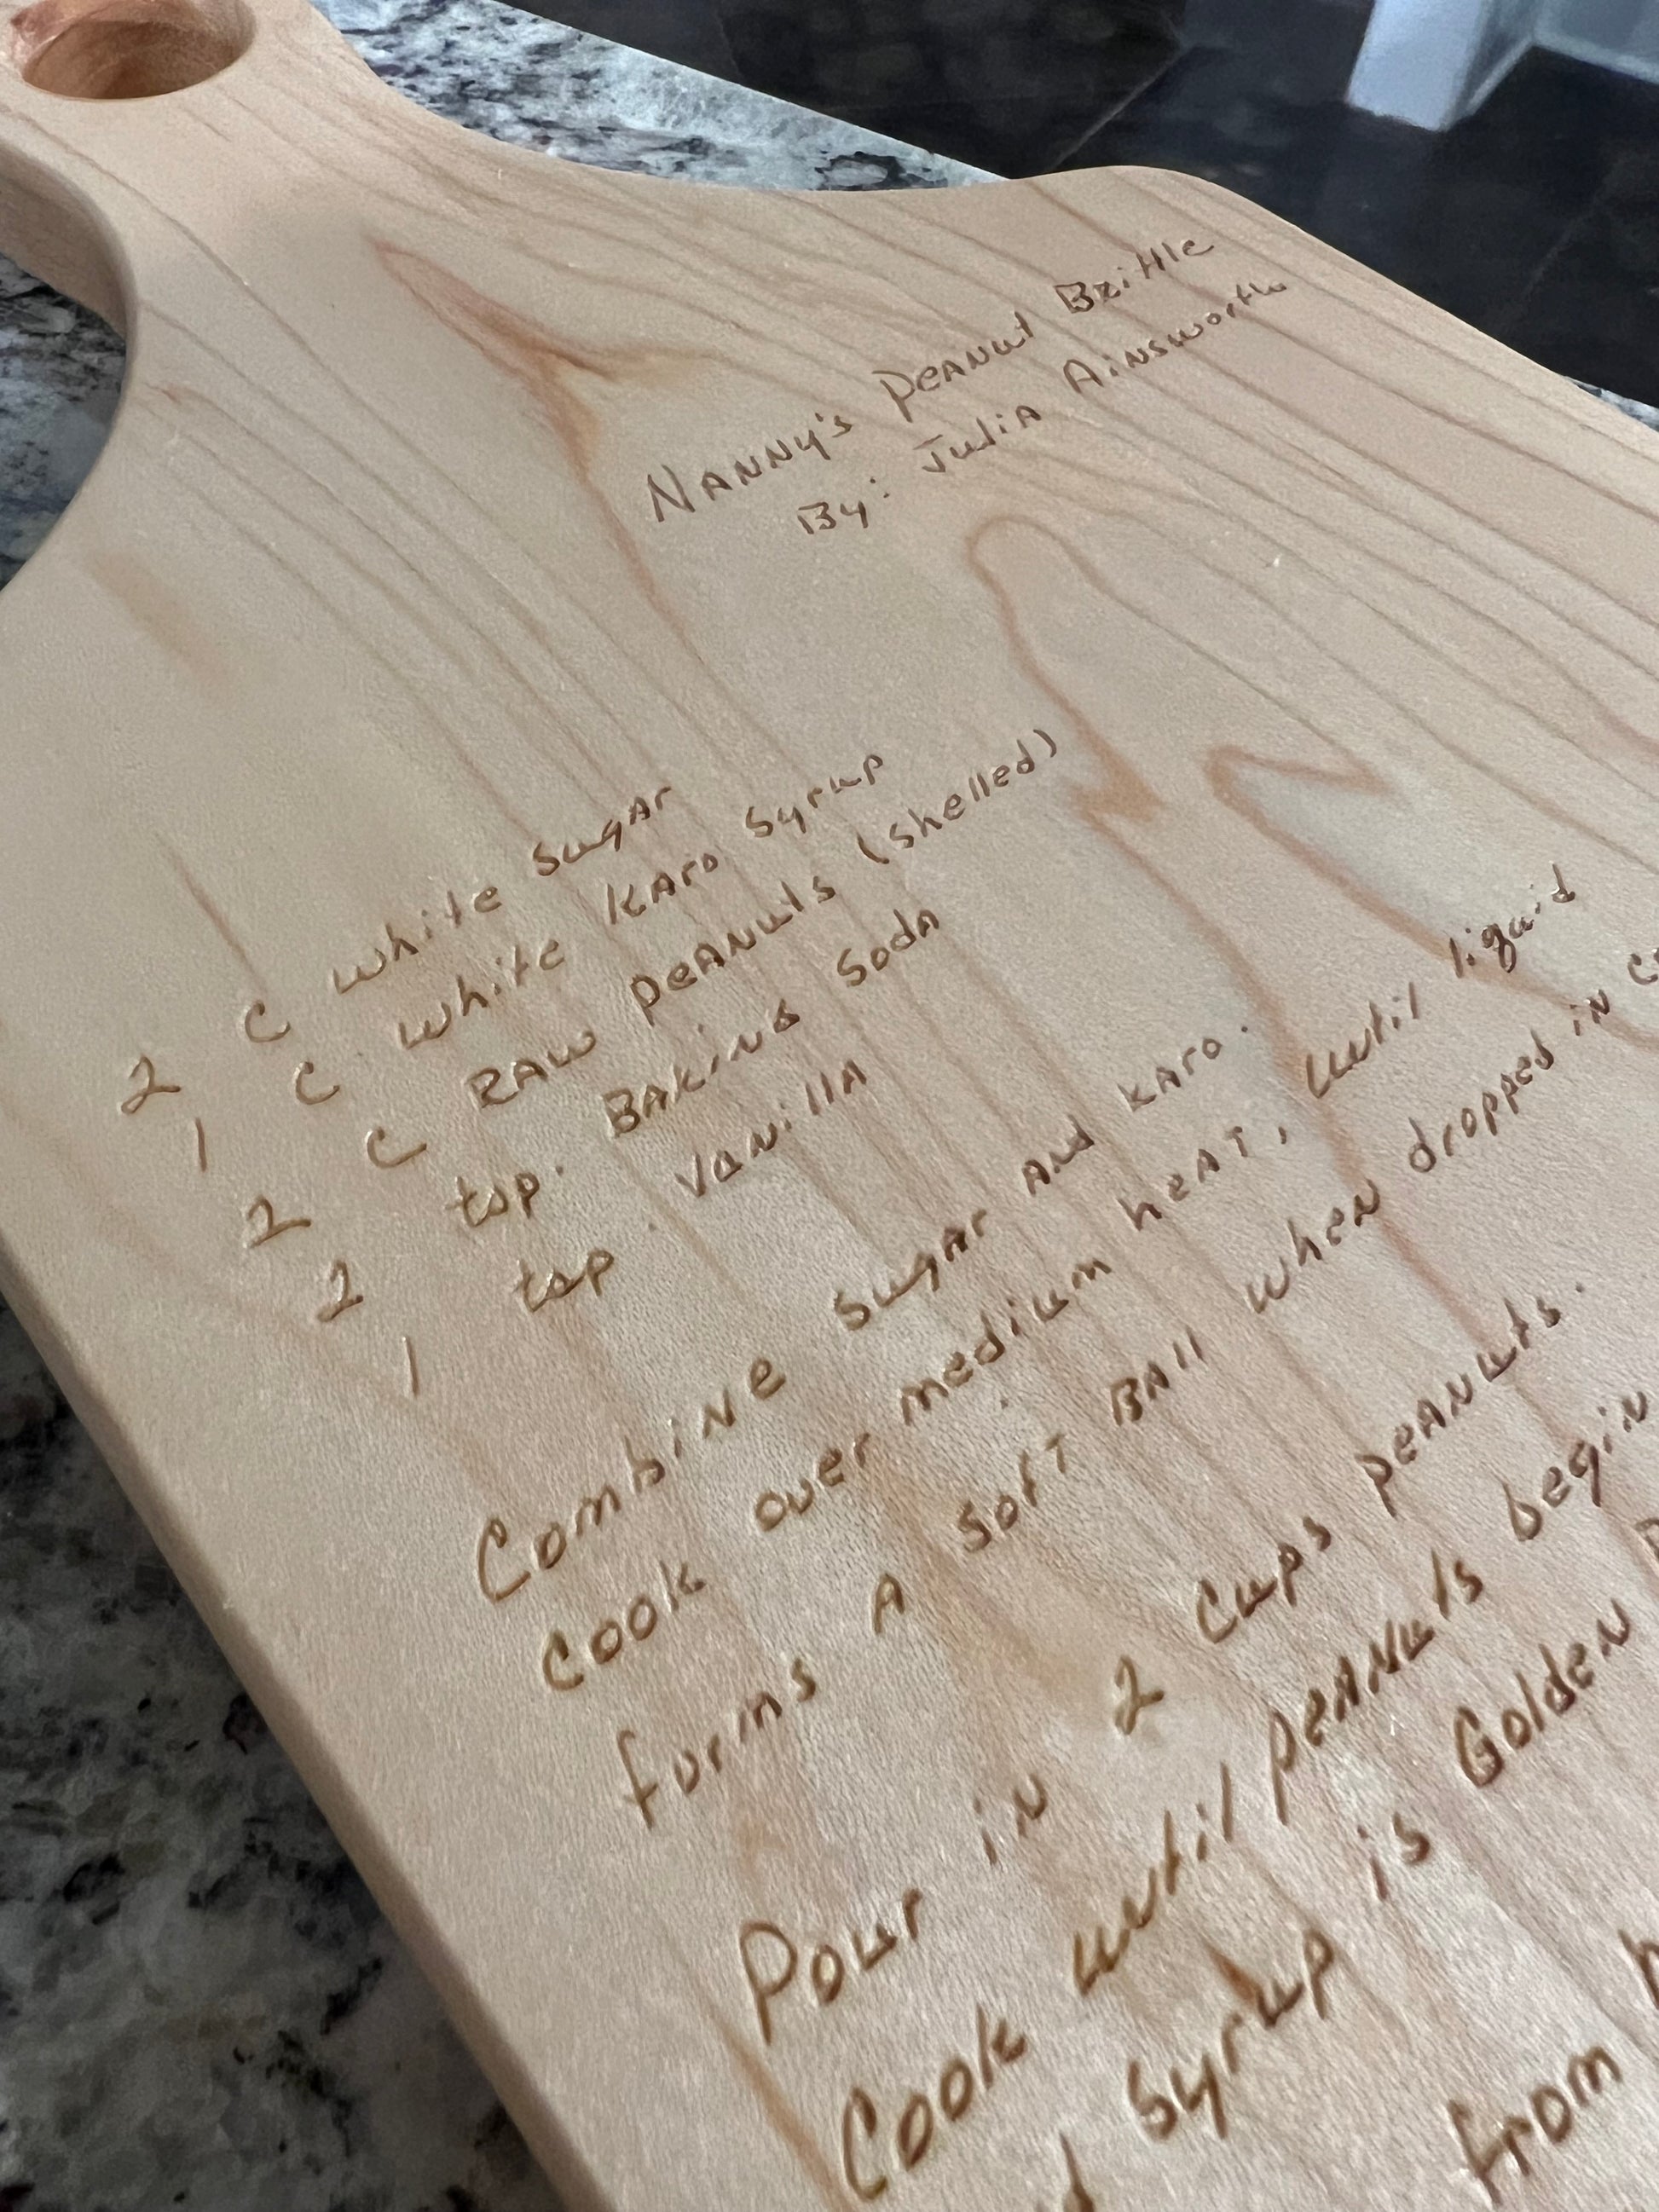 Nanny's Peanut Brittle
By: Julia Ainsworth
2 C white sugar
1 C white Karo Syrup
2 C Raw peanuts (shelled)
2 tsp. Baking Soda
1 tsp. Vanilla
Combine sugar and karo.
Cook over medium heat, until liquid
forms a soft Ball when dropped in
Pour in 2 cups peanuts.
Cook until peanuts begin
syrup is Golden
from